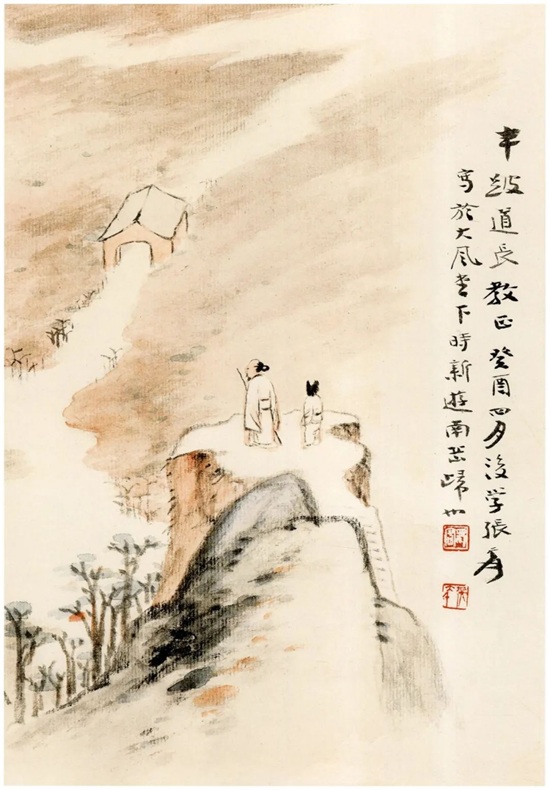 半道長教正癸酉四月後学張爰
寫於大風堂下時新遊南岳歸也